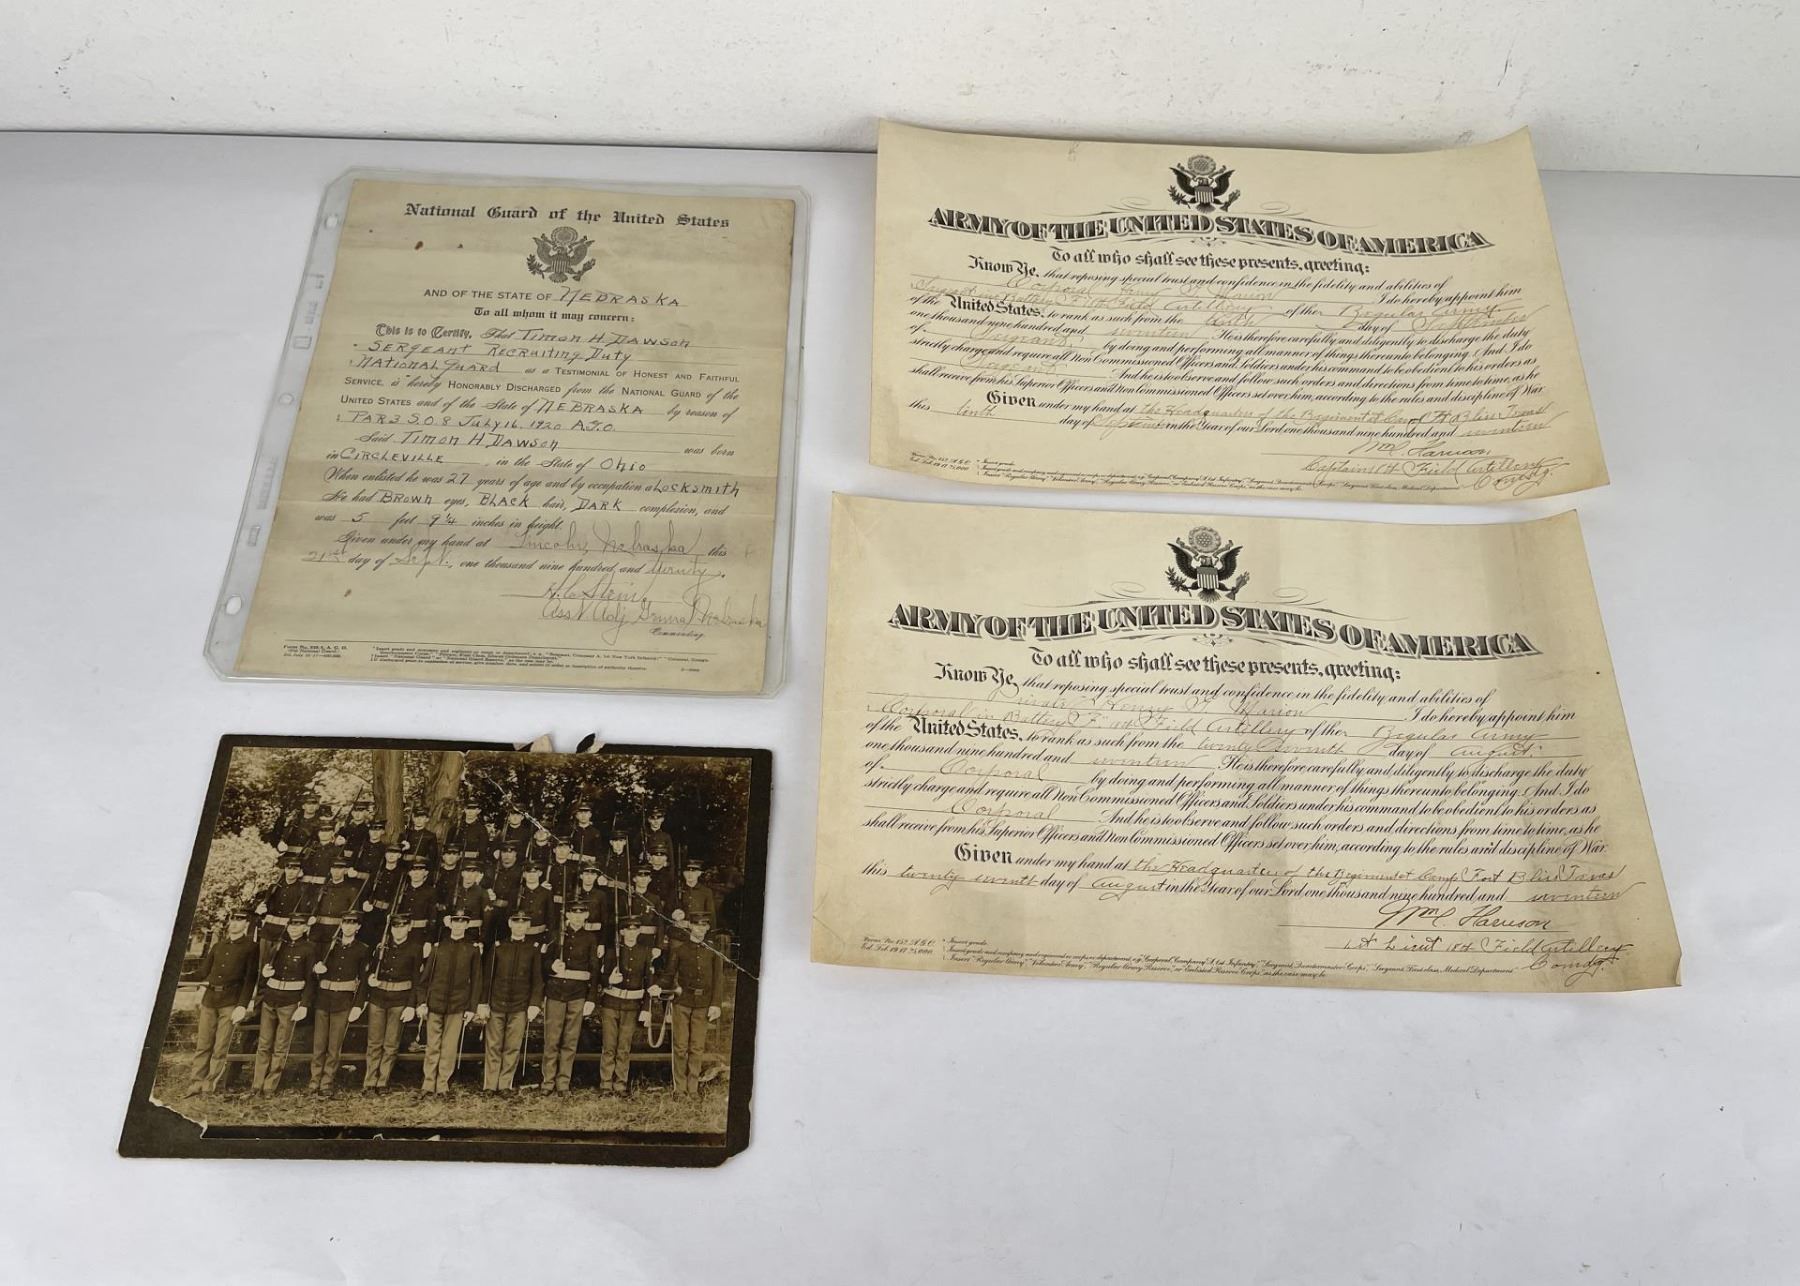 National Guard of the United States
AND OF THE STATE OF NEBRASKA
To all whom it may concern:
This is to Certify, That TIMON H DAWSON
SERGEANT RECRUITING DUTY
NATIONAL GUARD as a TESTIMONIAL OF HONEST AND FAITHFUL
SERVICE, is hereby HONORABLY DISCHARGED from the NATIONAL GUARD of the
UNITED STATES and of the State of NEBRASKA by reason of
PAR 3 S.O. 8 July 16, 1920 A.G.O.
Said TIMON H DAWSON was born
in CIRCLEVILLE, in the State of OHIO
When enlisted he was 27 years of age and by occupation a LOCKSMITH
He had BROWN eyes, BLACK hair, DARK complexion, and
was 5 feet 9 1/4 inches in height.
Given under my hand at Lincoln, Nebraska this
21st day of Sept., one thousand nine hundred and twenty.
H.C. Stein
Ass't Adj General Nebraska
Commanding.
ARMY OF THE UNITED STATES OF AMERICA
To all who shall see these presents, greeting:
Know Ye, that reposing special trust and confidence in the fidelity and abilities of
Corporal Marion I do hereby appoint him
Sergeant in Battery F 18th Field Artillery of the Regular Army
of the United States, to rank as such from the tenth day of September
one thousand nine hundred and seventeen. He is therefore carefully and diligently to discharge the duty
of Sergeant by doing and performing all manner of things thereunto belonging. And I do
strictly charge and require all Non Commissioned Officers and Soldiers under his command to be obedient to his orders as
Sergeant And he is to observe and follow such orders and directions from time to time, as he
shall receive from his Superior Officers and Non Commissioned Officers set over him, according to the rules and discipline of War.
Given under my hand at the Headquarters of the Regiment at Camp Ft Bliss Texas
this tenth day of September in the Year of our Lord one thousand nine hundred and seventeen
Wm. Harrison
Captain 18th Field Artillery
Comdg.
ARMY OF THE UNITED STATES OF AMERICA
To all who shall see these presents, greeting:
Know Ye, that reposing special trust and confidence in the fidelity and abilities of
Private Henry Marion I do hereby appoint him
Corporal in Battery "F" 18th Field Artillery of the Regular Army
of the United States, to rank as such from the twenty seventh day of August
one thousand nine hundred and seventeen. He is therefore carefully and diligently to discharge the duty
of Corporal by doing and performing all manner of things thereunto belonging. And I do
strictly charge and require all Non Commissioned Officers and Soldiers under his command to be obedient to his orders as
Corporal And he is to observe and follow such orders and directions from time to time, as he
shall receive from his Superior Officers and Non Commissioned Officers set over him, according to the rules and discipline of War.
Given under my hand at the Headquarters of the Regiment at Camp Fort Bliss Texas
this twenty seventh day of August in the Year of our Lord one thousand nine hundred and seventeen
Wm. Harrison
1st Lieut 18th Field Artillery
Comdg.
Form No. 152, A.G.O. * Insert grade.